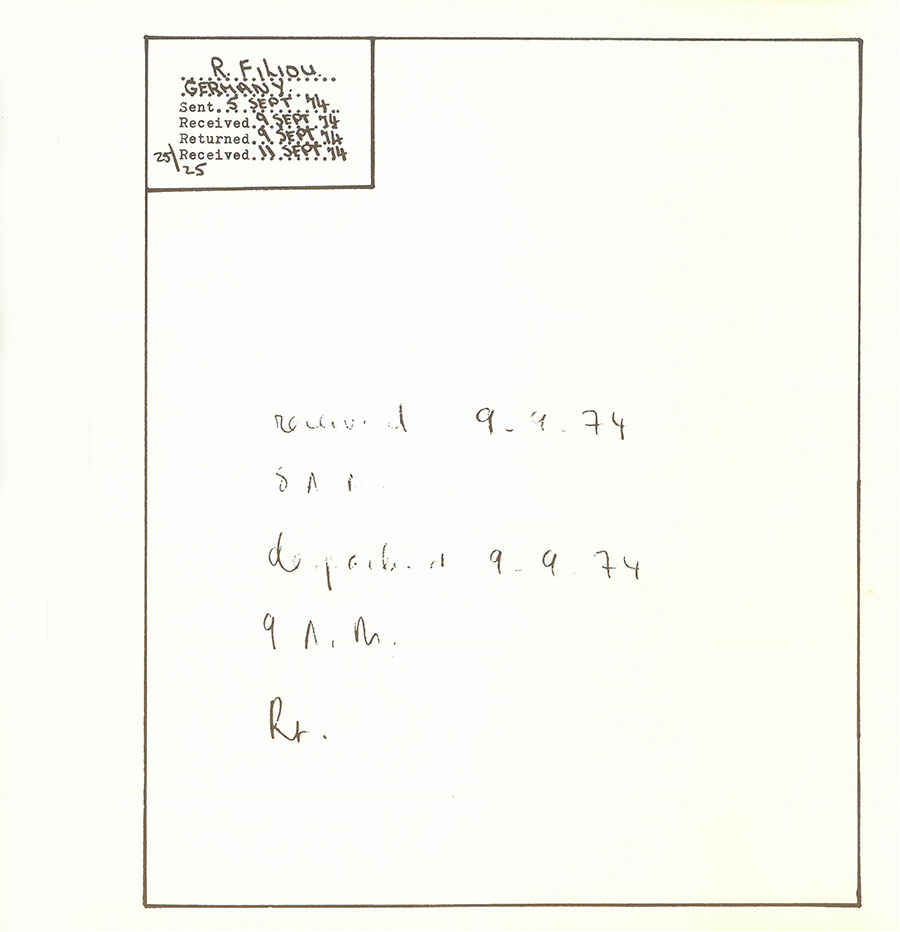 R. FILIOU
GERMANY.
Sent..5 SEPT '74
Received.9 SEPT '74
Returned.9 SEPT '74
Received.11 SEPT '74
25/25
received 9-9-74
8 A
9-9-74
9 A.M.